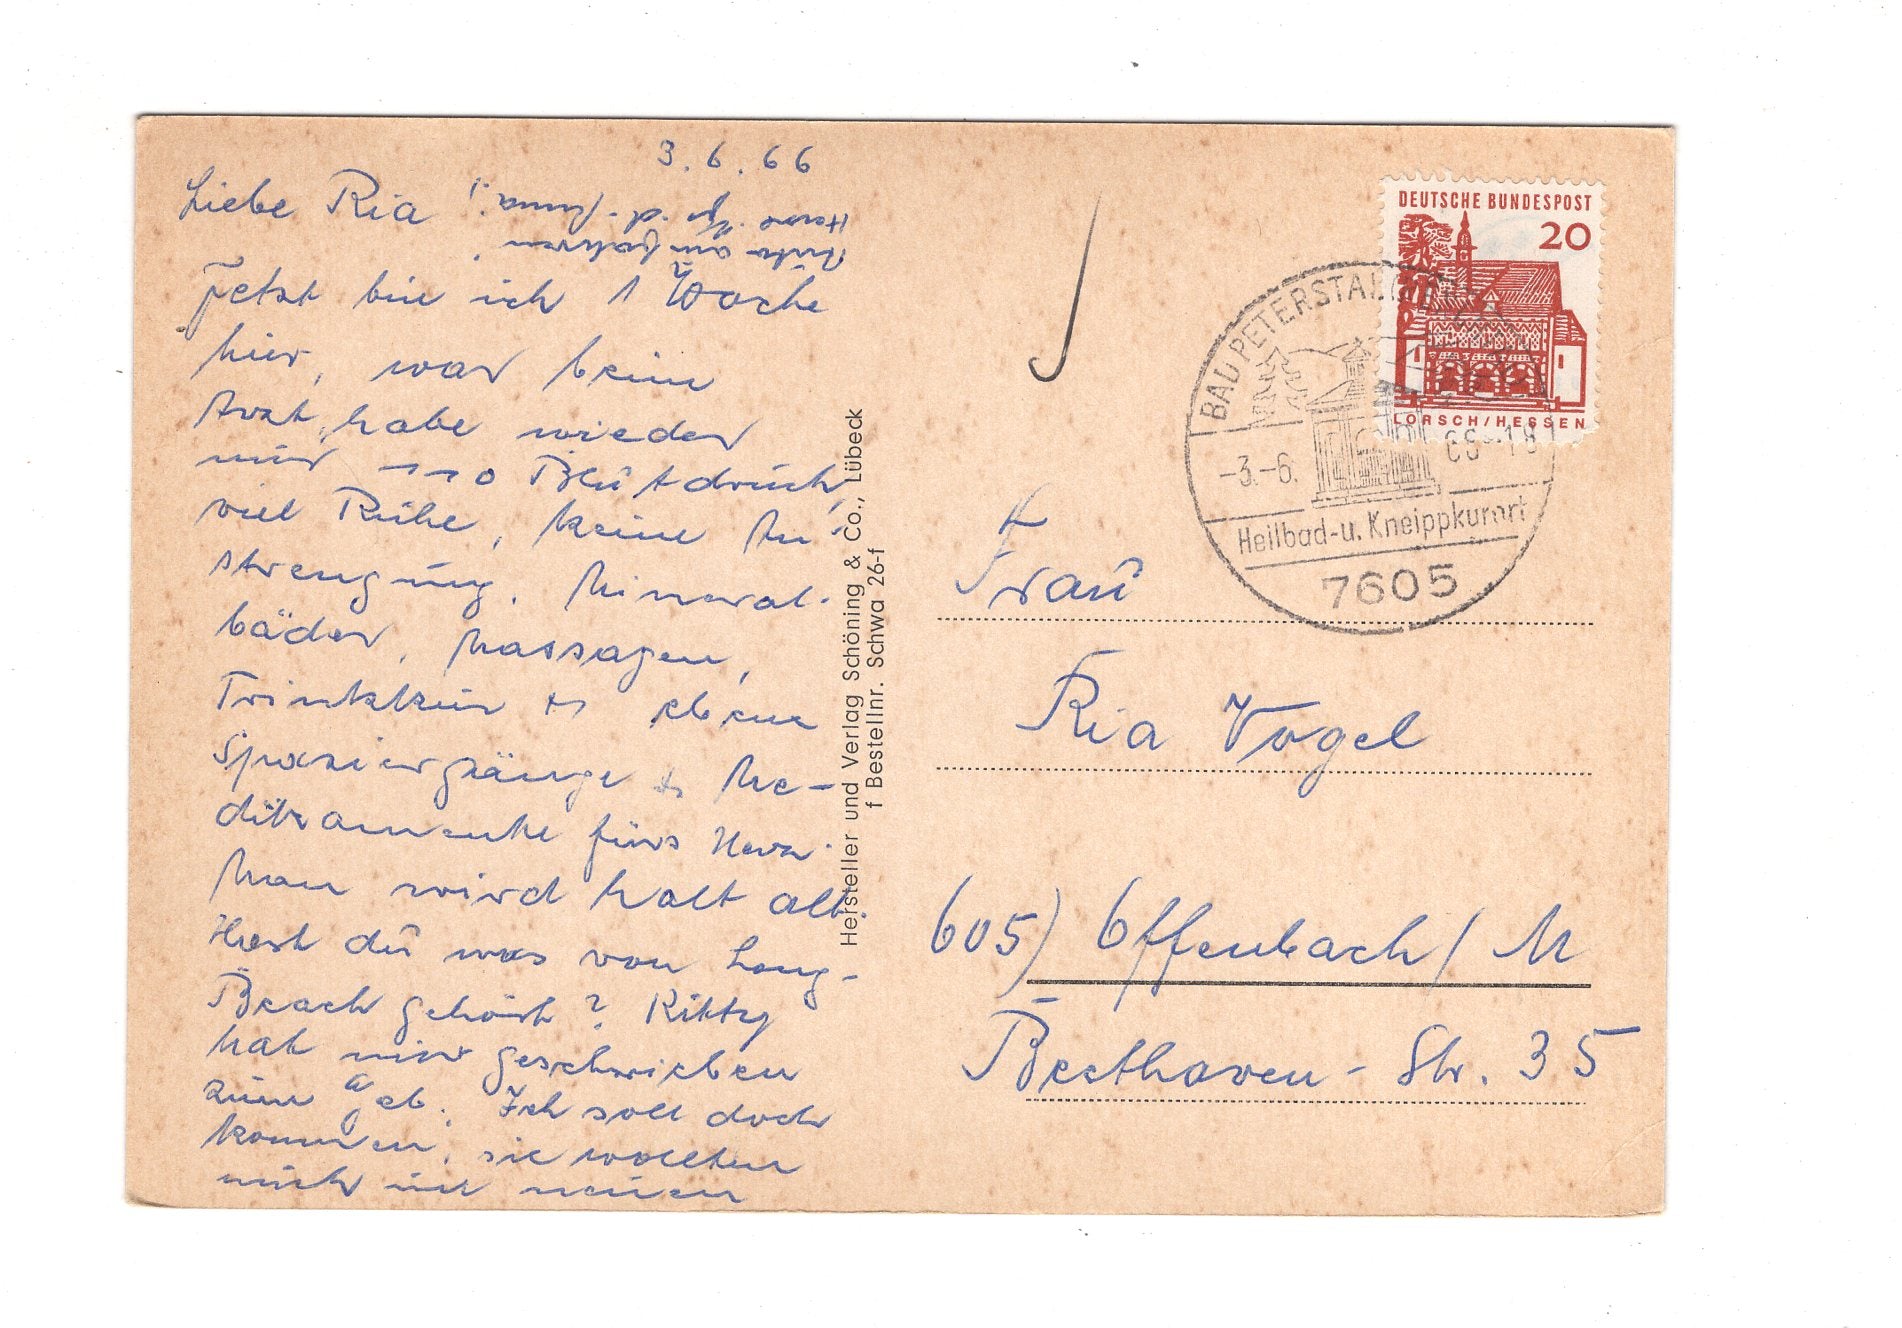 3.6.66
Liebe Ria!
Jetzt bin ich 1 Woche
hier, war beim
Arzt, habe wieder
nur 110 Blutdruck,
viel Ruhe, keine An-
strengung. Mineral-
bäder, Massagen,
Trinkkur + ebene
Spaziergänge + Me-
dikamente fürs Herz.
Man wird halt alt.
Hast du was von Long-
Beach gehört? Kitty
hat mir geschrieben
zum Geb. Ich soll doch
kommen, sie wollten
mich im neuen
Hersteller und Verlag Schöning & Co., Lübeck
f Bestellnr. Schwa 26-f
DEUTSCHE BUNDESPOST
20
LORSCH/HESSEN
BAD PETERSTAL
-3.-6. 66-18
Heilbad-u. Kneippkurort
7605
Frau
Ria Vogel
605) Offenbach/M
Beethoven-Str. 35